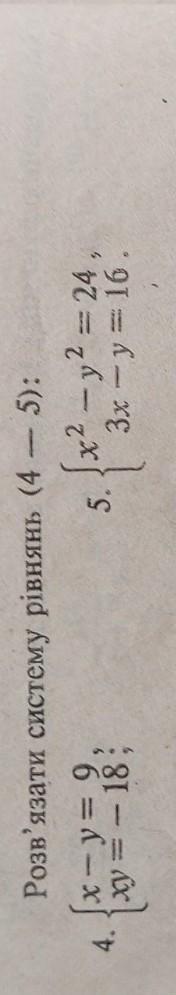 Розв'язати систему рівнянь (4 — 5):
4. { x − y = 9,
xy = − 18;
5. { x² − y² = 24,
3x − y = 16.